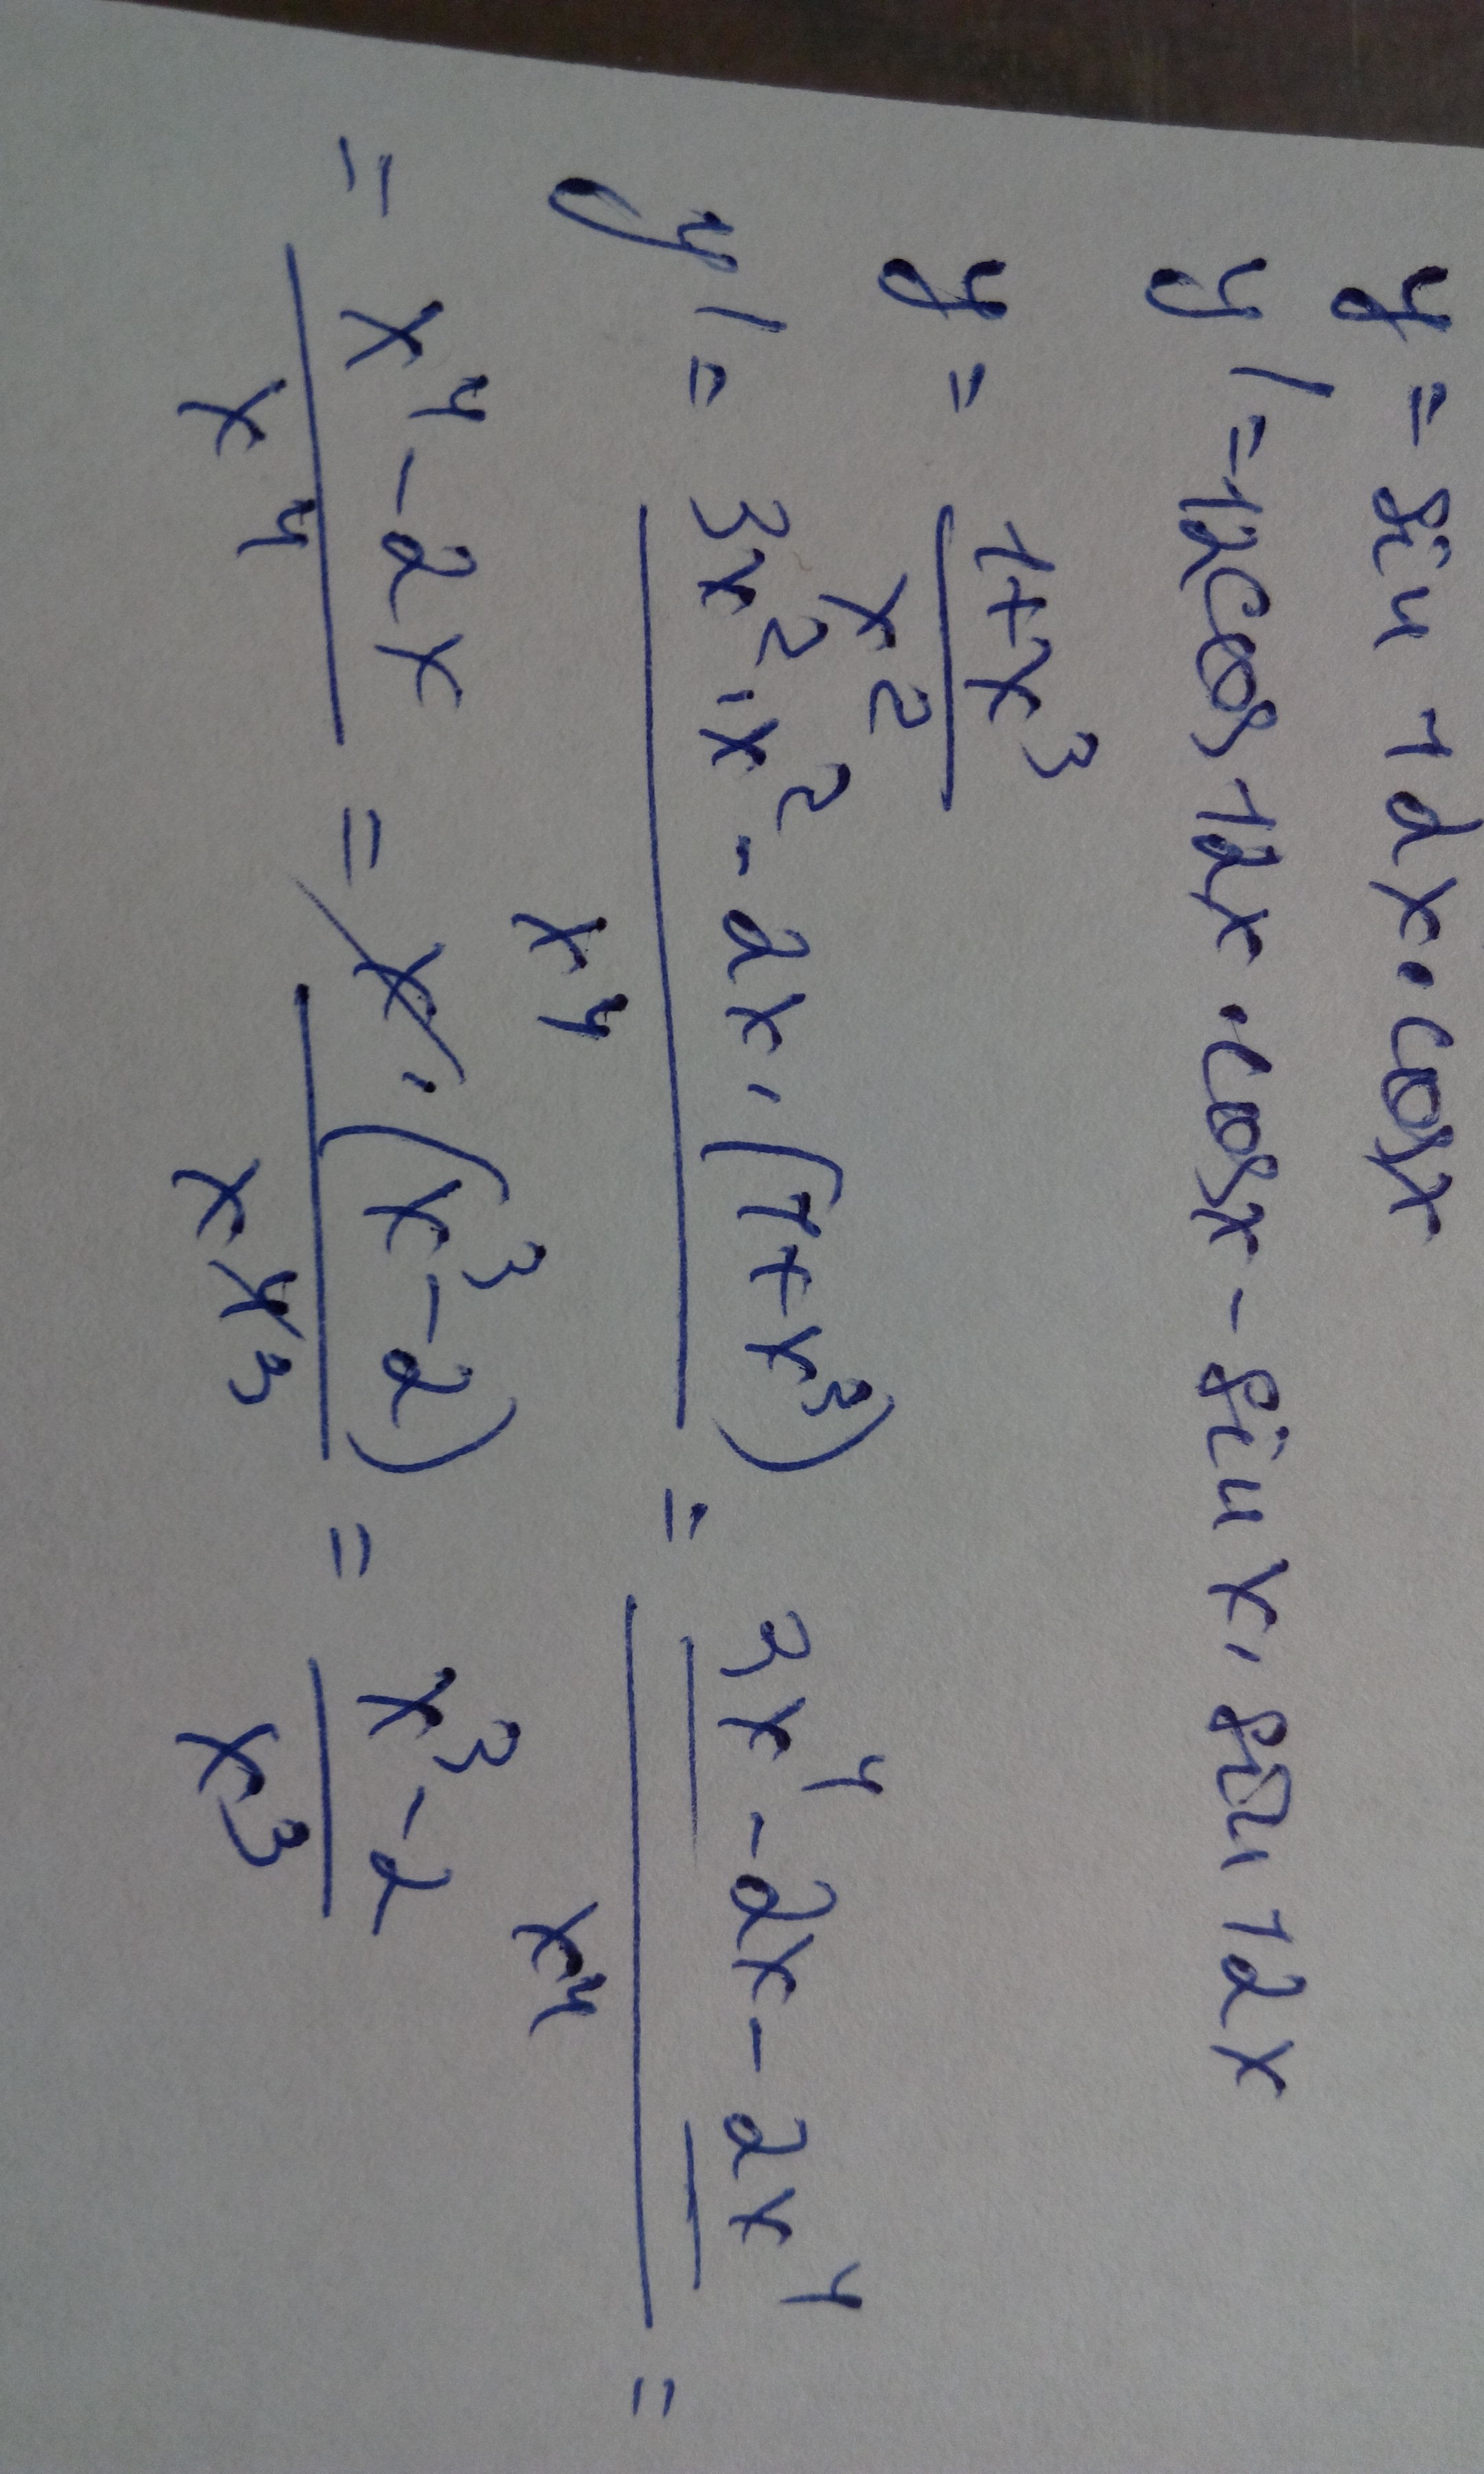 y = sin 12x · cosx
y' = 12cos 12x · cosx - sin x · sin 12x
y = (1+x³)/x²
y' = (3x² · x² - 2x · (1+x³))/x⁴ = (3x⁴ - 2x - 2x⁴)/x⁴ =
= (x⁴ - 2x)/x⁴ = x · (x³ - 2)/x⁴ ³ = (x³ - 2)/x³